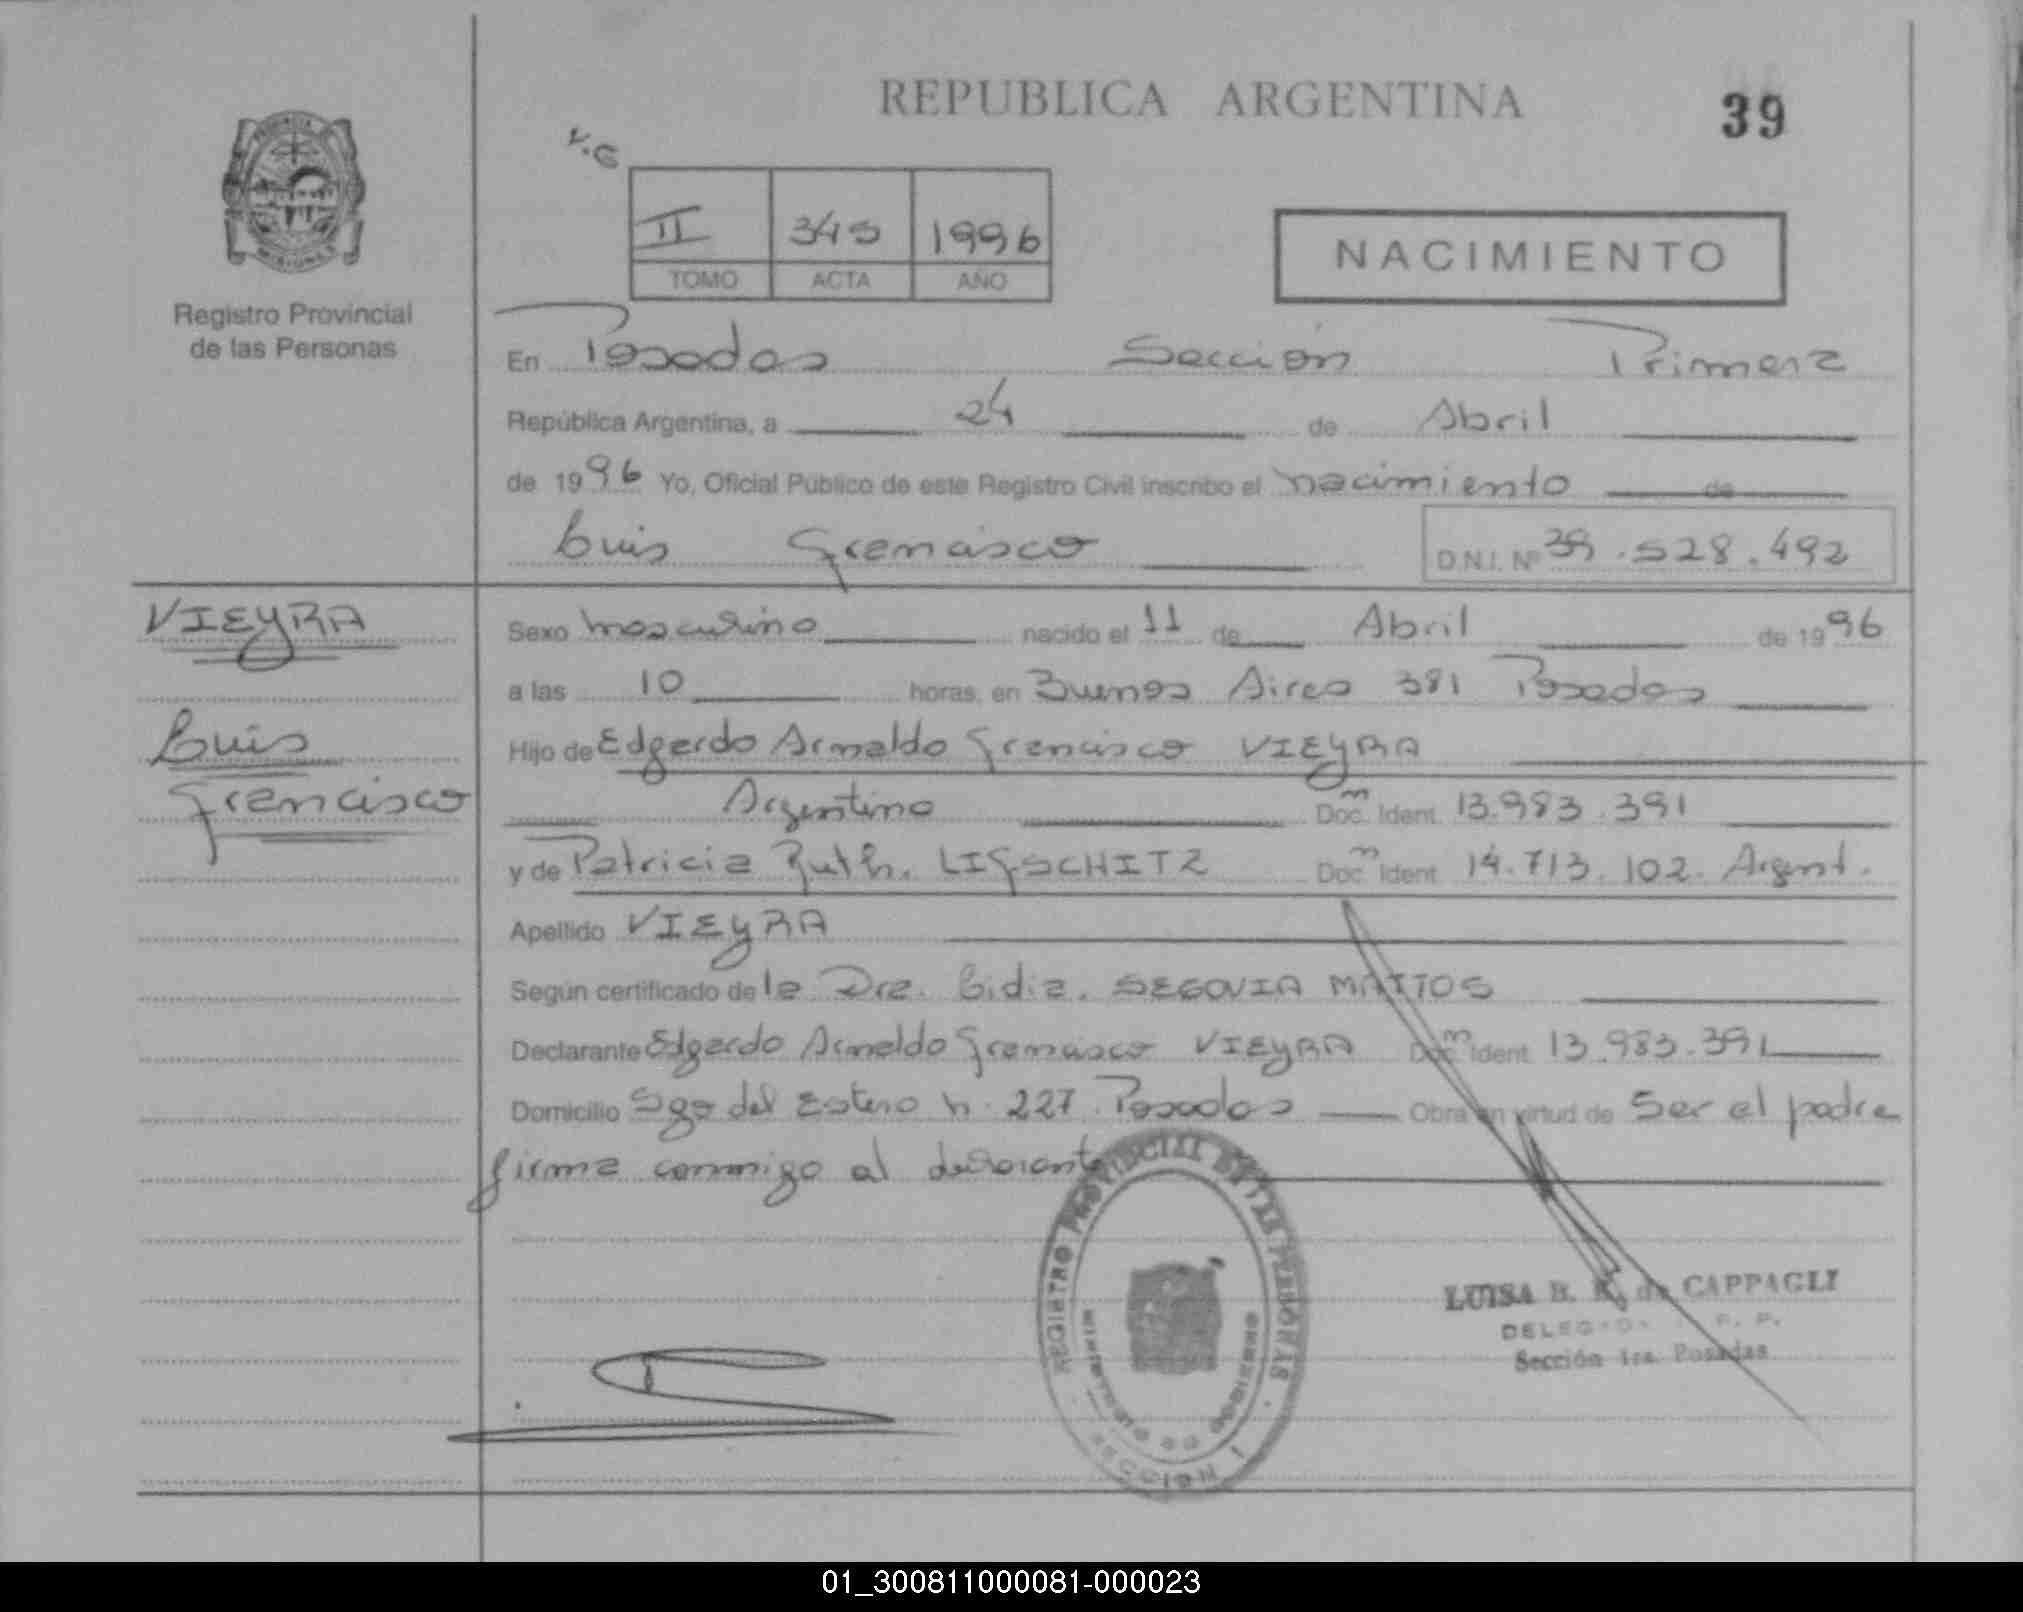 REPUBLICA ARGENTINA
39
II 345 1996
TOMO ACTA AÑO
NACIMIENTO
Registro Provincial
de las Personas
En Posadas Sección Primera
República Argentina, a 24 de Abril
de 1996 Yo, Oficial Público de este Registro Civil inscribo el nacimiento de
Luis Francisco D.N.I. Nº 39.528.492
VIEYRA
Luis
Francisco
Sexo masculino nacido el 11 de Abril de 1996
a las 10 horas, en Buenos Aires 381 Posadas
Hijo de Edgardo Arnaldo Francisco VIEYRA
Argentino Doc. Ident. 13.983.391
y de Patricia Ruth. LIFSCHITZ Doc. Ident. 14.713.102. Argent.
Apellido VIEYRA
Según certificado de la Dra. Lidia. SEGOVIA MATTOS
Declarante Edgardo Arnaldo Francisco VIEYRA Doc. Ident. 13.983.391
Domicilio Sgo del Estero n. 227. Posadas Obra en virtud de Ser el padre
firma conmigo el declarante
REGISTRO PROVINCIAL DE LAS PERSONAS
MINISTERIO DE GOBIERNO
SECCION 1
LUISA B. de CAPPAGLI
Sección 1ra. Posadas
01_300811000081-000023